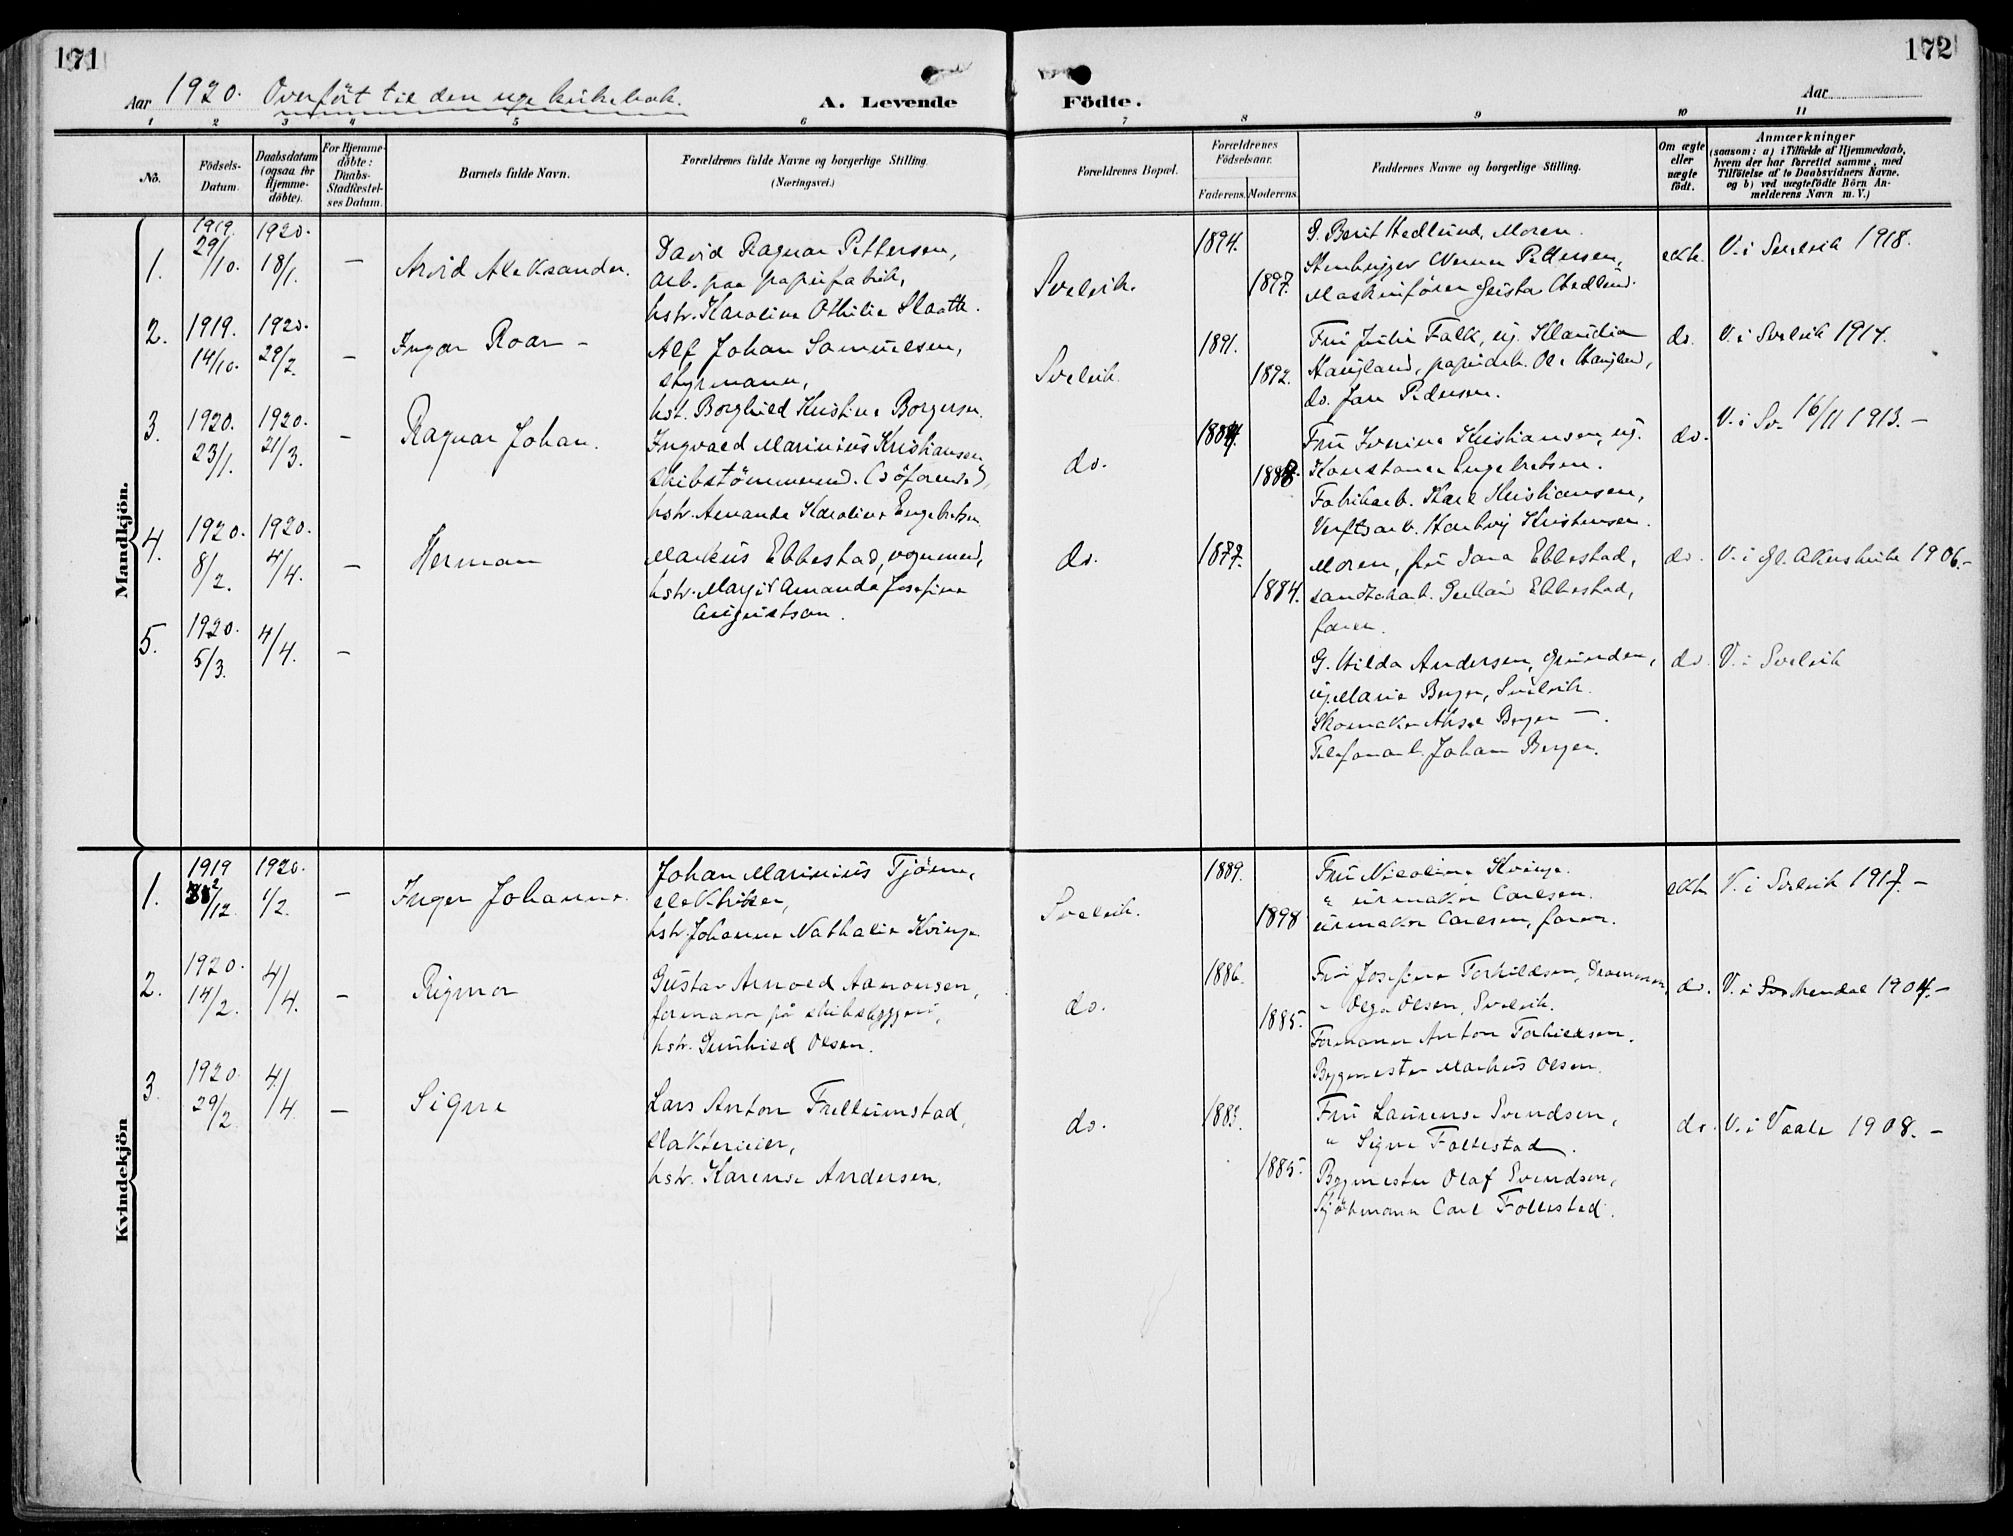 171
172
Aar 1920. Overført til den nye kirkebok.
A. Levende Födte.
Aar
1 2 3 4 5 6 7 8 9 10 11
No.
Födsels-Datum.
Daabsdatum (ogsaa for Hjemme-döbte).
For Hjemme-döbte: Daabs-Stadfæstelses Datum.
Barnets fulde Navn.
Forældrenes fulde Navne og borgerlige Stilling. (Næringsvei.)
Forældrenes Bopæl.
Forældrenes Födselsaar.
Faderens. Moderens.
Faddernes Navne og borgerlige Stilling.
Om ægte eller uægte födt.
Anmærkninger
(saasom: a) i Tilfælde af Hjemmedaab, hvem der har forrettet samme, med Tilföielse af to Daabsvidners Navne, og b) ved uægtefödte Börn Anmelderens Navn m. V.)
Mandkjön.
1. 1919. 29/10. 1920. 18/1. — Arvid Aleksander.
David Ragnar Pettersen,
arb. paa papirfabrik,
hstr. Karoline Othilie Slaatte.
Svelvik. 1894. 1897.
G. Berit Hedlund, Moren.
Stenhugger Verner Pettersen,
Maskinfører Gøsta Hedlund.
ekte. V. i Svelvik 1918.
2. 1919. 14/10. 1920. 29/2. — Ingar Roar —
Alf Johan Samuelsen,
styrmann,
hst. Borghild Kristine Borgersen.
Svelvik. 1891. 1892.
Fru Julie Falk, ug. Klaudia
Haugland, papirarb. Ole Haugland,
do. Jan Pedersen.
do. V. i Svelvik 1914.
3. 1920. 23/1. 1920. 21/3. — Ragnar Johan.
Ingvald Marinius Kristiansen
skibstømmermd. (søfarende),
hstr. Amanda Karoline Engebretsen
do. 1884. 1888.
Fru Iverine Kristiansen, ug.
Konstance Engebretsen.
Fabrikarb. Karl Kristiansen,
Verftsarb. Hartvig Kristensen.
do. V. i Sv. 16/11 1913. —
4. 1920. 8/2. 1920. 4/4. — Herman
Markus Ebbestad, vognmand,
hstr. Margit Amanda Josefine
Augustson.
do. 1877. 1884.
Moren, fru Jana Ebbestad,
Ebbestad,
faren.
do. V. i gl. Akers kirke 1906. —
5. 1920. 5/3. 4/4. —
G. Hilda Andersen, Grunden,
ug. Marie Berger, Svelvik.
Skomaker Berger —.
Telefonarb. Johan Berger.
do. V. i Svelvik
Kvindekjön
1. 1919 /12. 1920. 1/2. — Inger Johanne.
Johan Marinius Tjøme,
elektriker,
hstr. Johanne Nathalie Kvinge
Svelvik. 1889. 1898
Fru Nicoline Kvinge.
" urmaker Carlsen.
urmaker Carlsen, faren.
ekte V. i Svelvik 1917. —
2. 1920. 14/2. 4/4. — Rigmor
Gustav Arnold Aamonsen,
formann på skibsbyggeri,
hstr. Gunhild Olsen.
do. 1886. 1885.
Fru Josefine Torkildsen, Drammen,
" Olga Olsen, Svelvik.
Formann Anton Torkildsen.
Bygmester Markus Olsen.
do. V. i Sørkendal 1904. —
3. 1920. 29/2. 4/4. — Signe
Lars Anton Frellumstad,
slakterieier,
hstr. Karense Andersen.
do. 1883. 1885.
Fru Laurense Svendsen,
" Signe Follestad.
Bygmester Olaf Svendsen,
Sjøkmann Carl Follestad.
do. V. i Vaale 1908. —